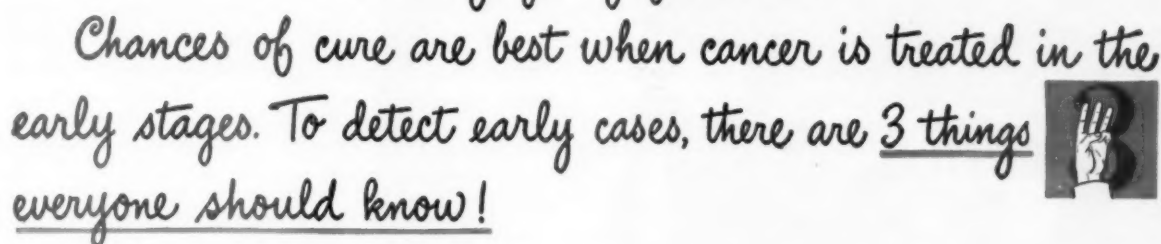 Chances of cure are best when cancer is treated in the
early stages. To detect early cases, there are 3 things
everyone should know!